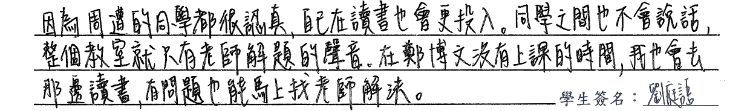 因為周遭的同學都很認真,自己在讀書也會更投入。同學之間也不會說話,
整個教室就只有老師解題的聲音。在鄭博文沒有上課的時間,我也會去
那邊讀書,有問題也能馬上找老師解決。
學生簽名:劉庭語